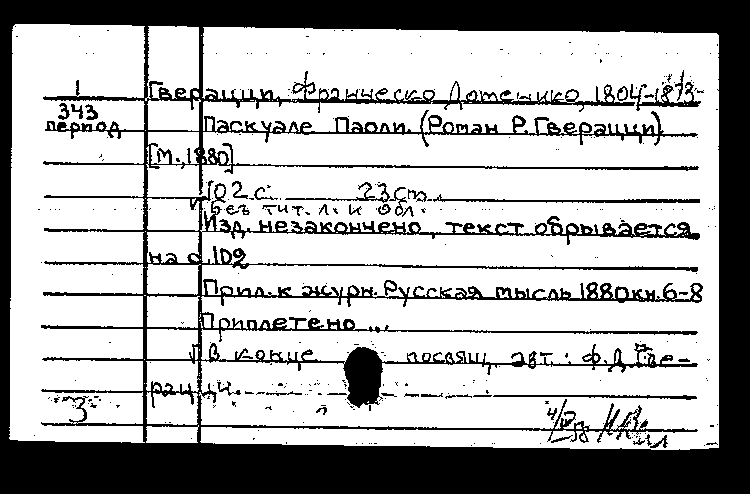 1
Гверацци, Франческо Доменико, 1804-1873
343
период
Паскуале Паоли. (Роман Р. Гверацци).
[М., 1880]
102 с. 23 cm.
Без тит. л. и обл.
Изд. незакончено, текст обрывается
на с. 102
Прил. к журн. Русская мысль 1880 кн. 6-8
Приплетено ...
В конце посвящ. авт.: Ф. Д. Гве-
рацци.
3